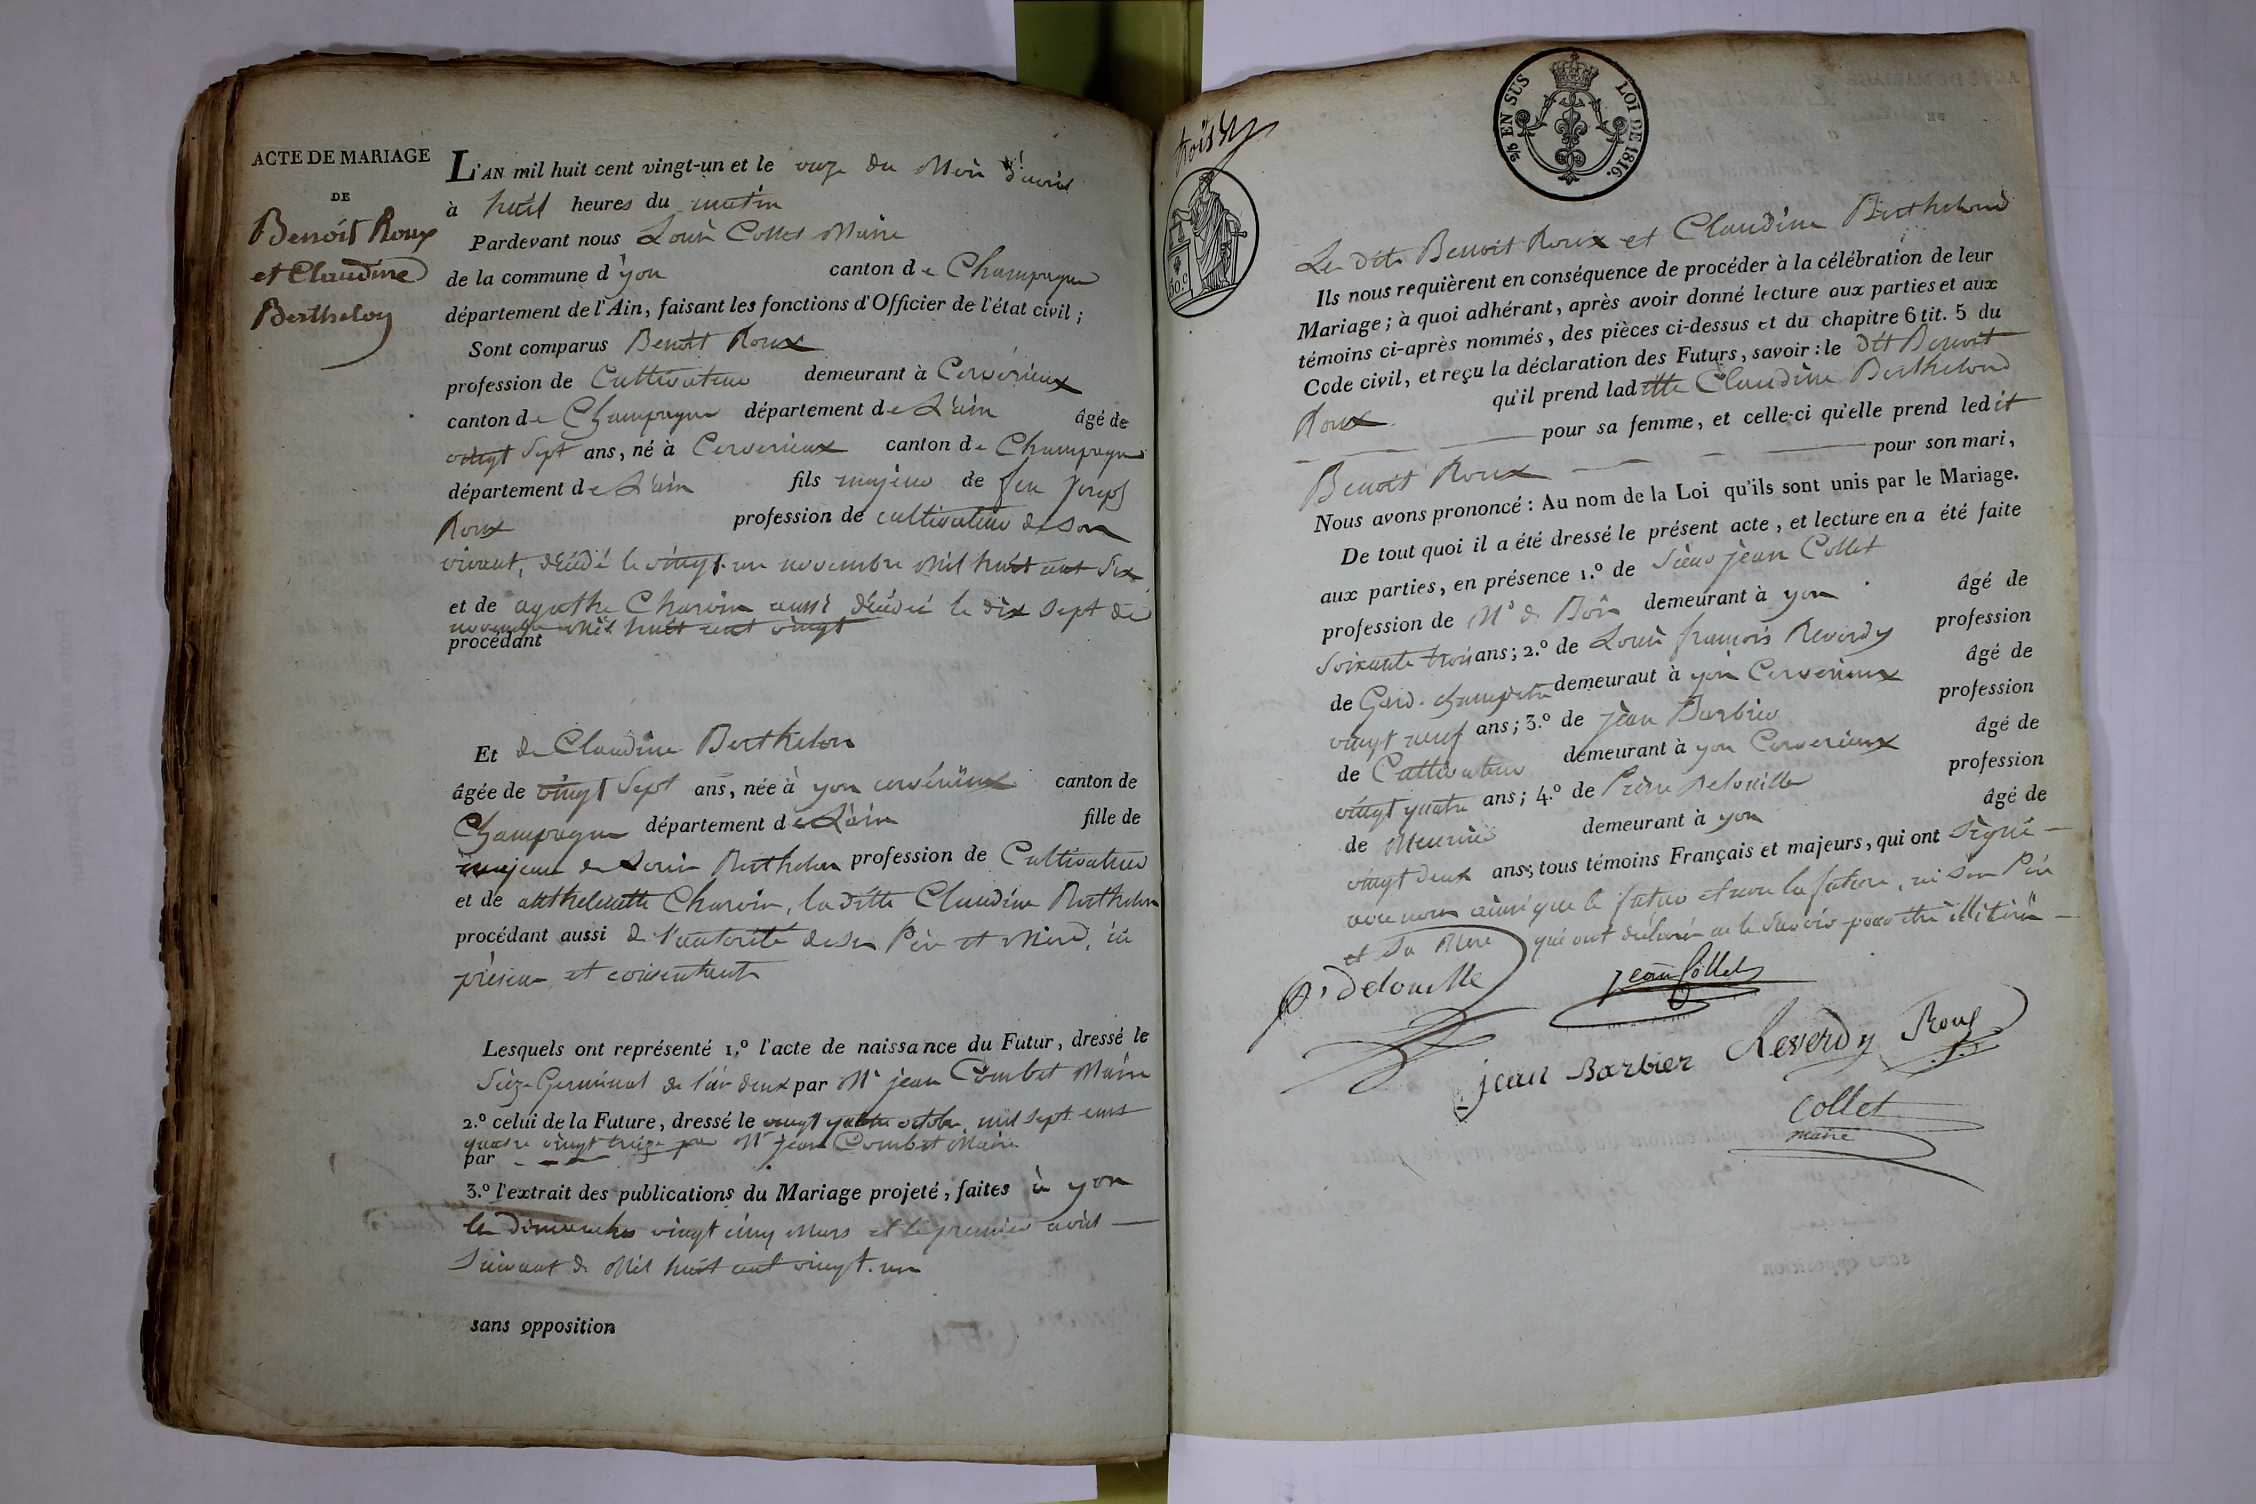 ACTE DE MARIAGE
DE
Benoit Roux
et Claudine
Berthelon
L'AN mil huit cent vingt-un et le onze du Mois d'avril
à huit heures du matin
Pardevant nous Louis Collet Maire
de la commune d'yon canton de Champagne
département de l'Ain, faisant les fonctions d'Officier de l'état civil ;
Sont comparus Benoit Roux
profession de Cultivateur demeurant à Cerverieux
canton de Champagne département de L'ain âgé de
vingt sept ans, né à Cerverieux canton de Champagne
département de L'ain fils majeur de feu joseph
Roux profession de cultivateur de son
vivant, décédé le vingt un novembre Mil huit cent six
et de agathe Charvin aussi décédée le dix sept de
novembre Mil huit cent vingt
procédant
Et de Claudine Berthelon
âgée de vingt sept ans, née à yon cerverieux canton de
Champagne département de L'ain fille de
majeure de Louis Berthelon profession de Cultivateur
et de anthelmette Charvin, la ditte Claudine Berthelon
procédant aussi de l'autorité de ses Père et Mère, ici
présens et consentents
Lesquels ont représenté 1.º l'acte de naissance du Futur, dressé le
Seize Germinal de l'an deux par Mr jean Combet Maire
2.º celui de la Future, dressé le vingt quatre octobre mil sept cens
quatre vingt treize par Mr jean Combet Maire
par
3.º l'extrait des publications du Mariage projeté, faites à yon
les dimanches vingt cinq Mars et le premier avril
Suivant de Mil huit cent vingt un
sans opposition
trois
2/5 EN SUS LOI DE 1816.
50.c
Les dits Benoit Roux et Claudine Berthelond
Ils nous requièrent en conséquence de procéder à la célébration de leur
Mariage ; à quoi adhérant, après avoir donné lecture aux parties et aux
témoins ci-après nommés, des pièces ci-dessus et du chapitre 6 tit. 5 du
Code civil, et reçu la déclaration des Futurs, savoir : le dit Benoit
Roux qu'il prend laditte Claudine Berthelond
pour sa femme, et celle-ci qu'elle prend ledit
Benoit Roux pour son mari,
Nous avons prononcé : Au nom de la Loi qu'ils sont unis par le Mariage.
De tout quoi il a été dressé le présent acte, et lecture en a été faite
aux parties, en présence 1.º de Sieur jean Collet
profession de Md de Bois demeurant à yon âgé de
soixante trois ans ; 2.º de Louis françois Reverdy profession
de Gard. champetre demeuraut à yon Cerverieux âgé de
vingt neuf ans ; 3.º de jean Barbier profession
de Cultivateur demeurant à yon Cerverieux âgé de
vingt quatre ans ; 4.º de Pierre Delouille profession
de Meunier demeurant à yon âgé de
vingt deux ans ; tous témoins Français et majeurs, qui ont signé
avec nous ainsi que le futur et non la future, ni son Père
et sa Mère qui ont déclaré ne le savoir pour être illitérés
P. Delouille
jean Collet
jean Barbier
Reverdy
Roux
Collet
maire